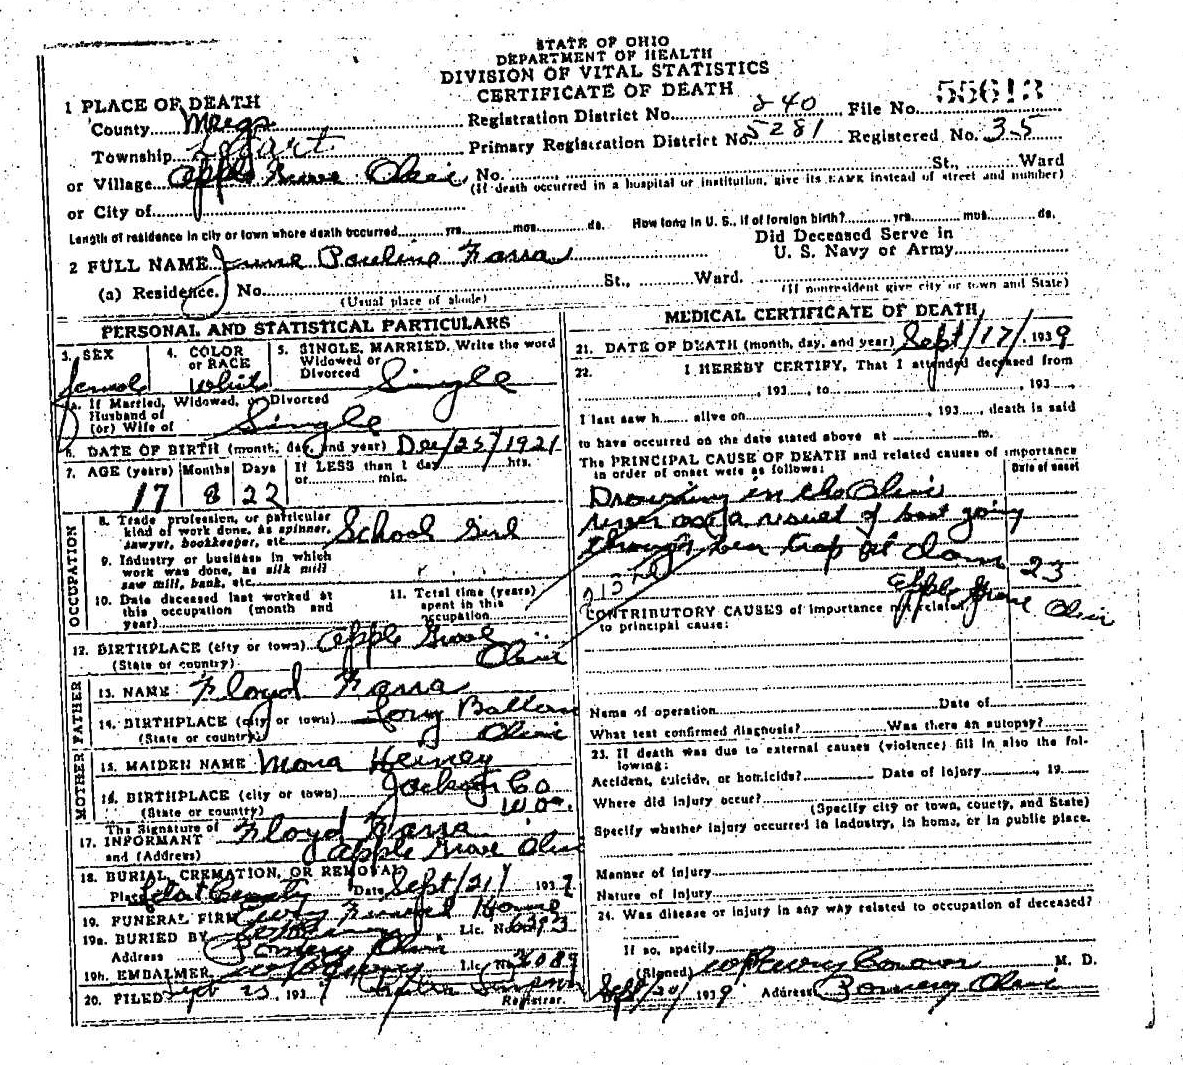 STATE OF OHIO
DEPARTMENT OF HEALTH
DIVISION OF VITAL STATISTICS
CERTIFICATE OF DEATH
1 PLACE OF DEATH
County Meigs Registration District No. 840 File No. 55613
Township Letart Primary Registration District No. 5281 Registered No. 35
or Village Apple Grove Ohio No. St., Ward
(If death occurred in a hospital or institution, give its NAME instead of street and number)
or City of
Length of residence in city or town where death occurred yrs. mos. ds. How long in U. S., if of foreign birth? yrs. mos. ds.
Did Deceased Serve in
2 FULL NAME June Pauline Farra U. S. Navy or Army
(a) Residence. No. St., Ward.
(Usual place of abode) (If nonresident give city or town and State)
PERSONAL AND STATISTICAL PARTICULARS
3. SEX 4. COLOR or RACE 5. SINGLE, MARRIED, Write the word Widowed or Divorced
female White Single
5a. If Married, Widowed, or Divorced
Husband of
(or) Wife of Single
6. DATE OF BIRTH (month, day, and year) Dec/25/1921
7. AGE (years) Months Days If LESS than 1 day hrs.
17 8 22 or min.
OCCUPATION
8. Trade profession, or particular
kind of work done, as spinner,
sawyer, bookkeeper, etc. School Girl
9. Industry or business in which
work was done, as silk mill
saw mill, bank, etc.
10. Date deceased last worked at
this occupation (month and
year)
11. Total time (years)
spent in this
occupation
12. BIRTHPLACE (city or town) Apple Grove
(State or country) Ohio
FATHER
13. NAME Floyd Farra
14. BIRTHPLACE (city or town) Long Bottom
(State or country) Ohio
MOTHER
15. MAIDEN NAME Mona
16. BIRTHPLACE (city or town) Jackson Co
(State or country) W Va.
The Signature of
17. INFORMANT Floyd Farra
and (Address) Apple Grove Ohio
18. BURIAL, CREMATION, OR REMOVAL
Place Letart Date Sept/21/ 1939
19. FUNERAL FIRM Ewing Funeral Home
19a. BURIED BY Lic. No. 6393
Address Pomeroy Ohio
19b. EMBALMER Lic. No. 3608A
20. FILED Sept 23, 1939 Registrar.
MEDICAL CERTIFICATE OF DEATH
21. DATE OF DEATH (month, day, and year) Sept/17/ 1939
22. I HEREBY CERTIFY, That I attended deceased from
, 193 , to , 193 ,
I last saw h alive on , 193 , death is said
to have occurred on the date stated above at m.
The PRINCIPAL CAUSE OF DEATH and related causes of importance
in order of onset were as follows: Date of onset
Drowning in the Ohio
river as a result of boat going
through bear trap at dam 23
Apple Grove Ohio
CONTRIBUTORY CAUSES of importance not related
to principal cause:
Name of operation Date of
What test confirmed diagnosis? Was there an autopsy?
23. If death was due to external causes (violence) fill in also the fol-
lowing:
Accident, suicide, or homicide? Date of Injury , 19
Where did injury occur?
(Specify city or town, county, and State)
Specify whether injury occurred in industry, in home, or in public place.
Manner of injury
Nature of injury
24. Was disease or injury in any way related to occupation of deceased?
If so, specify
(Signed) Coroner M. D.
Sept/20/ 1939 Address Pomeroy Ohio